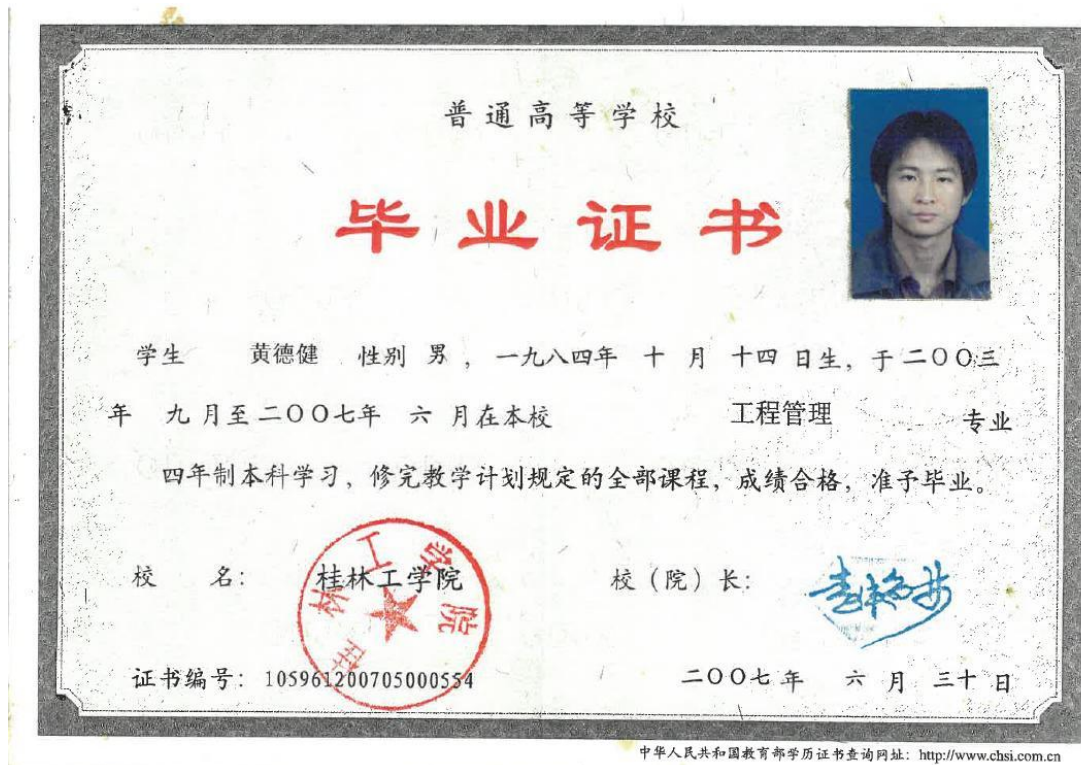 普通高等学校
毕业证书
学生 黄德健 性别 男，一九八四年 十 月 十四 日生，于二〇〇三
年 九 月至二〇〇七年 六 月在本校 工程管理 专业
四年制本科学习，修完教学计划规定的全部课程，成绩合格，准予毕业。
校 名： 桂林工学院 校（院）长：
桂林工学院
证书编号：105961200705000554 二〇〇七年 六 月 三十 日
中华人民共和国教育部学历证书查询网址：http://www.chsi.com.cn